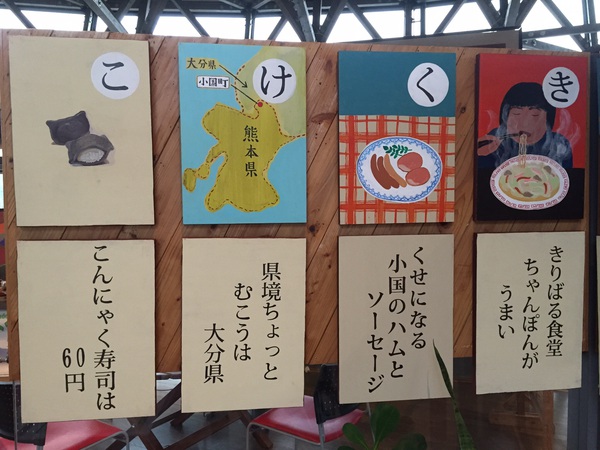 き
く
け
こ
大分県
小国町
熊本県
きりばる食堂
ちゃんぽんが
うまい
くせになる
小国のハムと
ソーセージ
県境ちょっと
むこうは
大分県
こんにゃく寿司は
60円